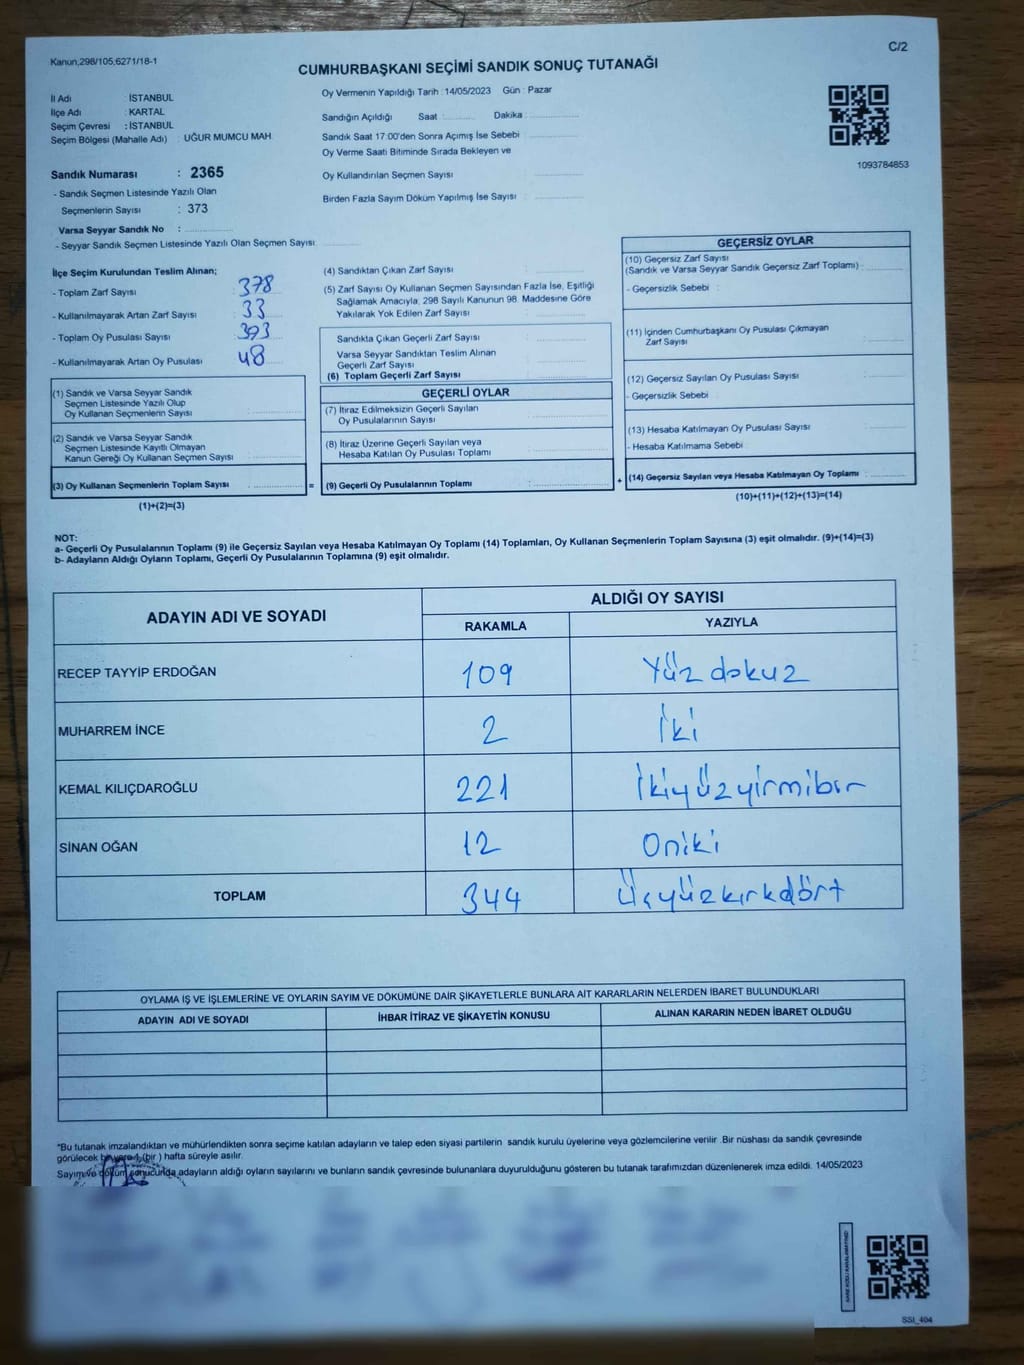 Kanun,298/105,6271/18-1
C/2
CUMHURBAŞKANI SEÇİMİ SANDIK SONUÇ TUTANAĞI
İl Adı : İSTANBUL
İlçe Adı : KARTAL
Seçim Çevresi : İSTANBUL
Seçim Bölgesi (Mahalle Adı) : UĞUR MUMCU MAH.
Sandık Numarası : 2365
- Sandık Seçmen Listesinde Yazılı Olan
Seçmenlerin Sayısı : 373
Varsa Seyyar Sandık No :
- Seyyar Sandık Seçmen Listesinde Yazılı Olan Seçmen Sayısı:
Oy Vermenin Yapıldığı Tarih : 14/05/2023 Gün : Pazar
Sandığın Açıldığı Saat Dakika :
Sandık Saat 17:00'den Sonra Açımış İse Sebebi :
Oy Verme Saati Bitiminde Sırada Bekleyen ve
Oy Kullandırılan Seçmen Sayısı
Birden Fazla Sayım Döküm Yapılmış İse Sayısı :
1093784853
İlçe Seçim Kurulundan Teslim Alınan;
- Toplam Zarf Sayısı : 378
- Kullanılmayarak Artan Zarf Sayısı : 33
- Toplam Oy Pusulası Sayısı : 393
- Kullanılmayarak Artan Oy Pusulası : 48
(1) Sandık ve Varsa Seyyar Sandık
Seçmen Listesinde Yazılı Olup
Oy Kullanan Seçmenlerin Sayısı :
(2) Sandık ve Varsa Seyyar Sandık
Seçmen Listesinde Kayıtlı Olmayan
Kanun Gereği Oy Kullanan Seçmen Sayısı :
(3) Oy Kullanan Seçmenlerin Toplam Sayısı :
(1)+(2)=(3)
(4) Sandıktan Çıkan Zarf Sayısı :
(5) Zarf Sayısı Oy Kullanan Seçmen Sayısından Fazla İse, Eşitliği
Sağlamak Amacıyla, 298 Sayılı Kanunun 98. Maddesine Göre
Yakılarak Yok Edilen Zarf Sayısı :
Sandıkta Çıkan Geçerli Zarf Sayısı :
Varsa Seyyar Sandıktan Teslim Alınan
Geçerli Zarf Sayısı :
(6) Toplam Geçerli Zarf Sayısı :
GEÇERLİ OYLAR
(7) İtiraz Edilmeksizin Geçerli Sayılan
Oy Pusulalarının Sayısı :
(8) İtiraz Üzerine Geçerli Sayılan veya
Hesaba Katılan Oy Pusulası Toplamı :
= (9) Geçerli Oy Pusulalarının Toplamı :
GEÇERSİZ OYLAR
(10) Geçersiz Zarf Sayısı
(Sandık ve Varsa Seyyar Sandık Geçersiz Zarf Toplamı) :
- Geçersizlik Sebebi :
(11) İçinden Cumhurbaşkanı Oy Pusulası Çıkmayan
Zarf Sayısı :
(12) Geçersiz Sayılan Oy Pusulası Sayısı :
- Geçersizlik Sebebi :
(13) Hesaba Katılmayan Oy Pusulası Sayısı :
- Hesaba Katılmama Sebebi :
+ (14) Geçersiz Sayılan veya Hesaba Katılmayan Oy Toplamı :
(10)+(11)+(12)+(13)=(14)
NOT:
a- Geçerli Oy Pusulalarının Toplamı (9) ile Geçersiz Sayılan veya Hesaba Katılmayan Oy Toplamı (14) Toplamları, Oy Kullanan Seçmenlerin Toplam Sayısına (3) eşit olmalıdır. (9)+(14)=(3)
b- Adayların Aldığı Oyların Toplamı, Geçerli Oy Pusulalarının Toplamına (9) eşit olmalıdır.
ADAYIN ADI VE SOYADI ALDIĞI OY SAYISI
RAKAMLA YAZIYLA
RECEP TAYYİP ERDOĞAN 109 Yüz dokuz
MUHARREM İNCE 2 İki
KEMAL KILIÇDAROĞLU 221 İkiyüzyirmibir
SİNAN OĞAN 12 Oniki
TOPLAM 344 Üçyüzkırkdört
OYLAMA İŞ VE İŞLEMLERİNE VE OYLARIN SAYIM VE DÖKÜMÜNE DAİR ŞİKAYETLERLE BUNLARA AİT KARARLARIN NELERDEN İBARET BULUNDUKLARI
ADAYIN ADI VE SOYADI İHBAR İTİRAZ VE ŞİKAYETİN KONUSU ALINAN KARARIN NEDEN İBARET OLDUĞU
*Bu tutanak imzalandıktan ve mühürlendikten sonra seçime katılan adayların ve talep eden siyasi partilerin sandık kurulu üyelerine veya gözlemcilerine verilir. Bir nüshası da sandık çevresinde
görülecek bir yere 1 (bir ) hafta süreyle asılır.
Sayım ve döküm sonucunda adayların aldığı oyların sayılarını ve bunların sandık çevresinde bulunanlara duyurulduğunu gösteren bu tutanak tarafımızdan düzenlenerek imza edildi. 14/05/2023
SSI_404